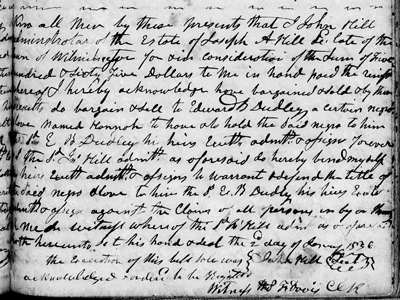 Know all Men by these presents that I John Hill
Administrator of the Estate of Joseph A Hill Dc late of the
Town of Wilmington for & in consideration of the Sum of five
hundred & Sixty five Dollars to Me in hand paid the receipt
whereof I hereby acknowledge have bargained & sold & by these
presents do bargain & sell to Edward B Dudley a certain negro
Slave Named Hannah to have & to hold the Said negro to him
the Sd. E B Dudley his heirs Exctr admtr. & assigns forever
& the Sd. Jno Hill admtr. as aforesaid do hereby bind myself
heirs Exctr admtr. & assigns to warrant & defend the title of
Said negro Slave to him the Sd. E. B Dudley his heirs Exctr
admtr. & assigns against the Claims of all persons in by or thru
Me In witness whereof the Sd. Jno Hill admr as aforesaid
has hereunto Set his hand & seal the 2d. day of 1836
the Execution of this bill Sale was John Hill Seal
acknowledged & ordered to be Registered
Witness Clk